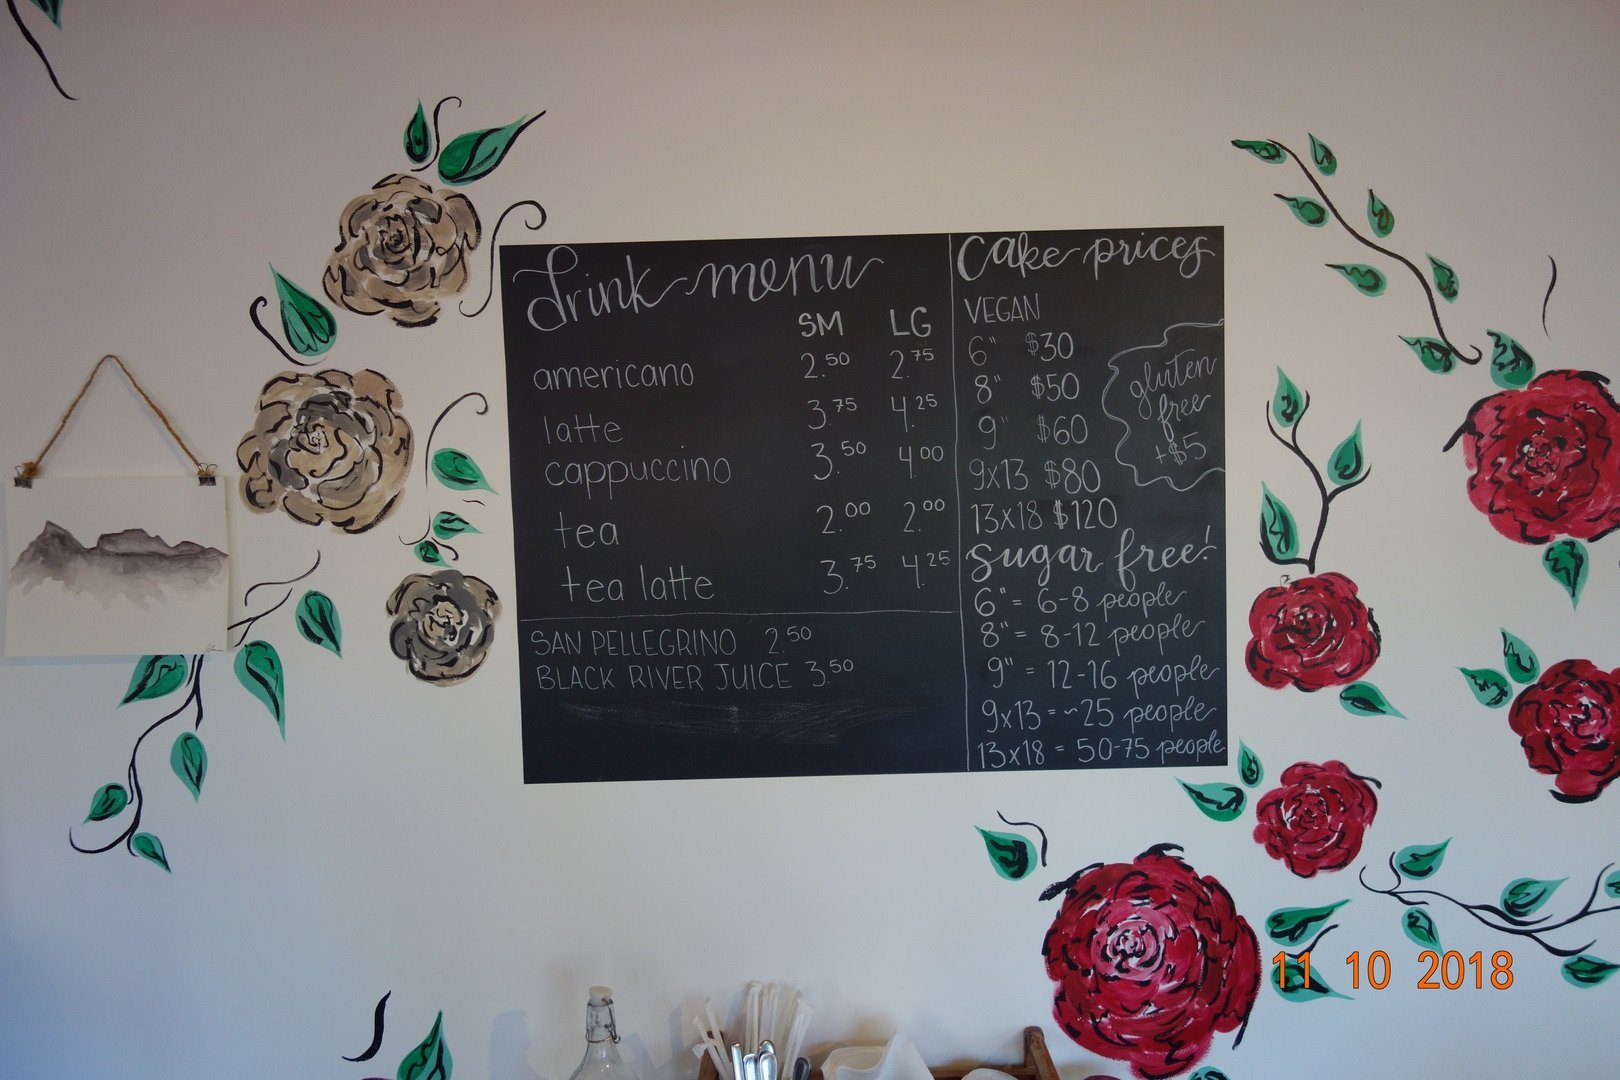 drink menu
SM LG
americano 2.50 2.75
latte 3.75 4.25
cappuccino 3.50 4.00
tea 2.00 2.00
tea latte 3.75 4.25
SAN PELLEGRINO 2.50
BLACK RIVER JUICE 3.50
Cake prices
VEGAN
6" $30
8" $50
9" $60
9x13 $80
13x18 $120
gluten
free
+$5
sugar free!
6" = 6-8 people
8" = 8-12 people
9" = 12-16 people
9x13 = ~25 people
13x18 = 50-75 people
11 10 2018